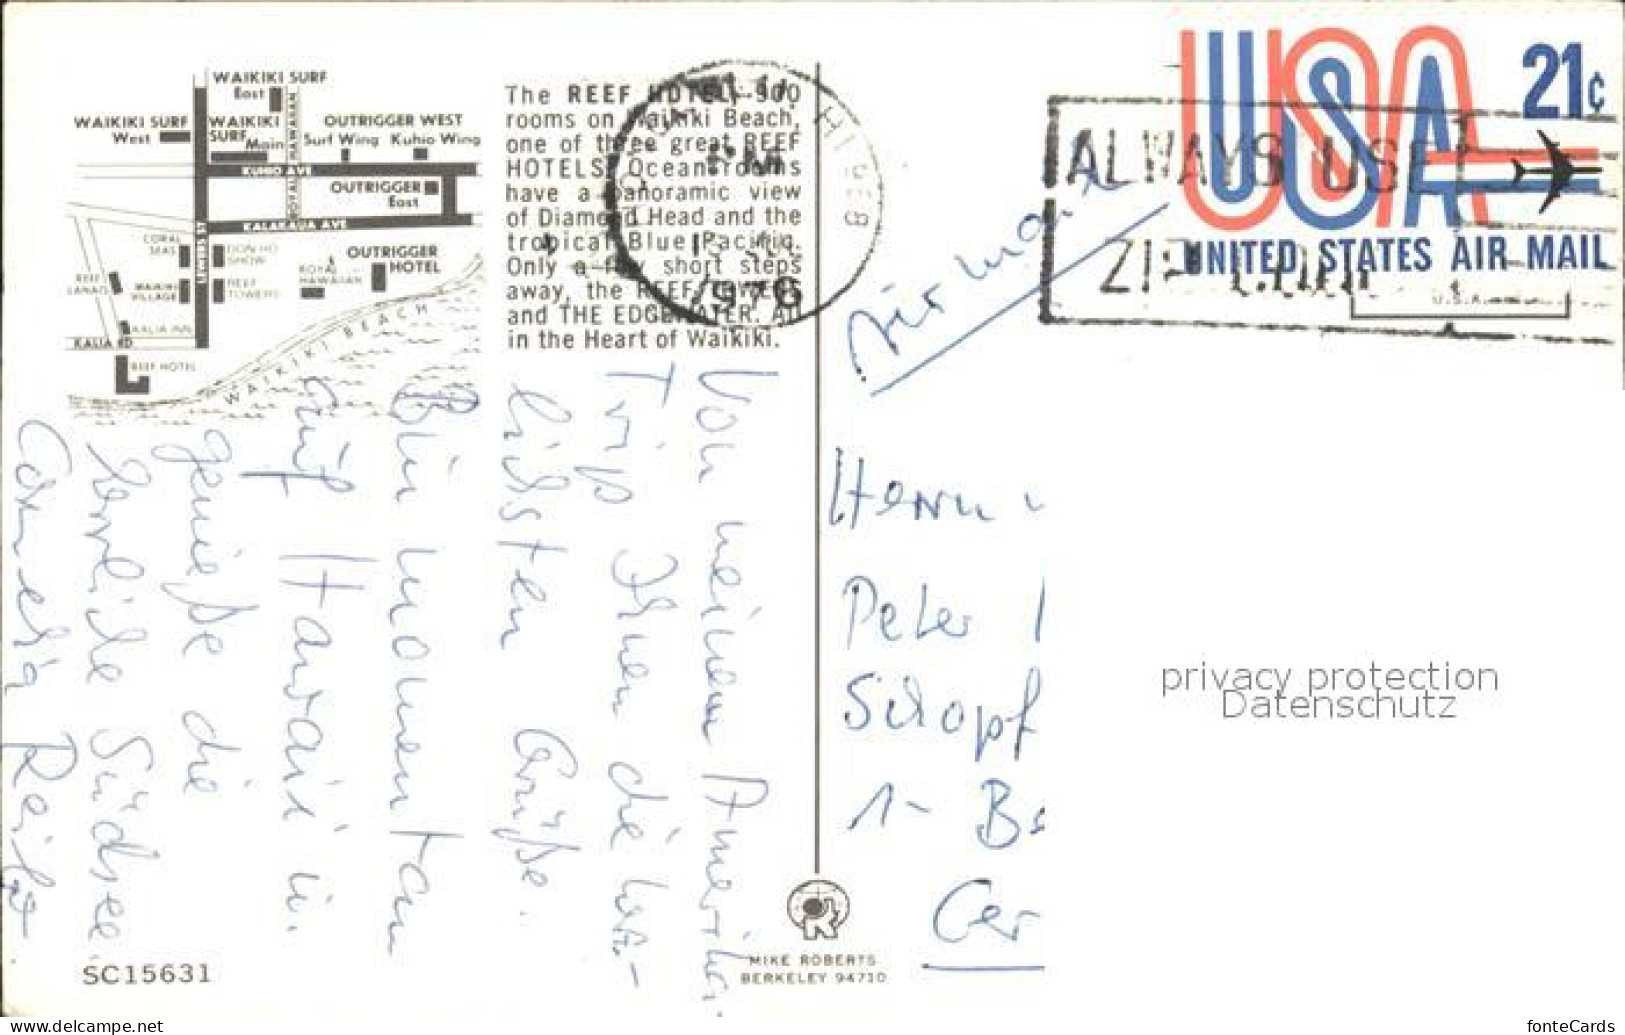 WAIKIKI SURF
East
WAIKIKI SURF
West
WAIKIKI
SURF
Main
HAWAIIAN
ROYAL
OUTRIGGER WEST
Surf Wing Kuhio Wing
KUHIO AVE
OUTRIGGER
East
KALAKAUA AVE
LEWERS ST
CORAL
SEAS
DON HO
SHOW
OUTRIGGER
HOTEL
REEF
LANAIS
WAIKIKI
VILLAGE
REEF
TOWERS
ROYAL
HAWAIIAN
KALIA INN
KALIA RD
REEF HOTEL
WAIKIKI BEACH
The REEF HOTEL, 900
rooms on Waikiki Beach,
one of three great REEF
HOTELS. Ocean rooms
have a panoramic view
of Diamond Head and the
tropical Blue Pacific.
Only a few short steps
away, the REEF TOWERS
and THE EDGEWATER. All
in the Heart of Waikiki.
PM
1976
USA
21¢
UNITED STATES AIR MAIL
ALWAYS USE
ZIP CODE
Air mail
Von meinem Amerika
Trip Ihnen die herz-
lichsten Grüße.
Bin momentan
auf Hawaii u.
genieße die
herrliche Südsee.
Cornelia
Herrn
Peter
Schopf
1- Be
Ger
MIKE ROBERTS
BERKELEY 94710
SC15631
privacy protection
Datenschutz
www.delcampe.net
fonteCards